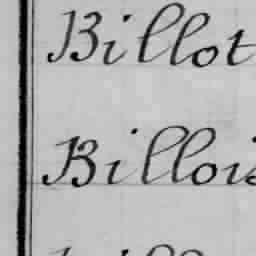 Billot
Billois